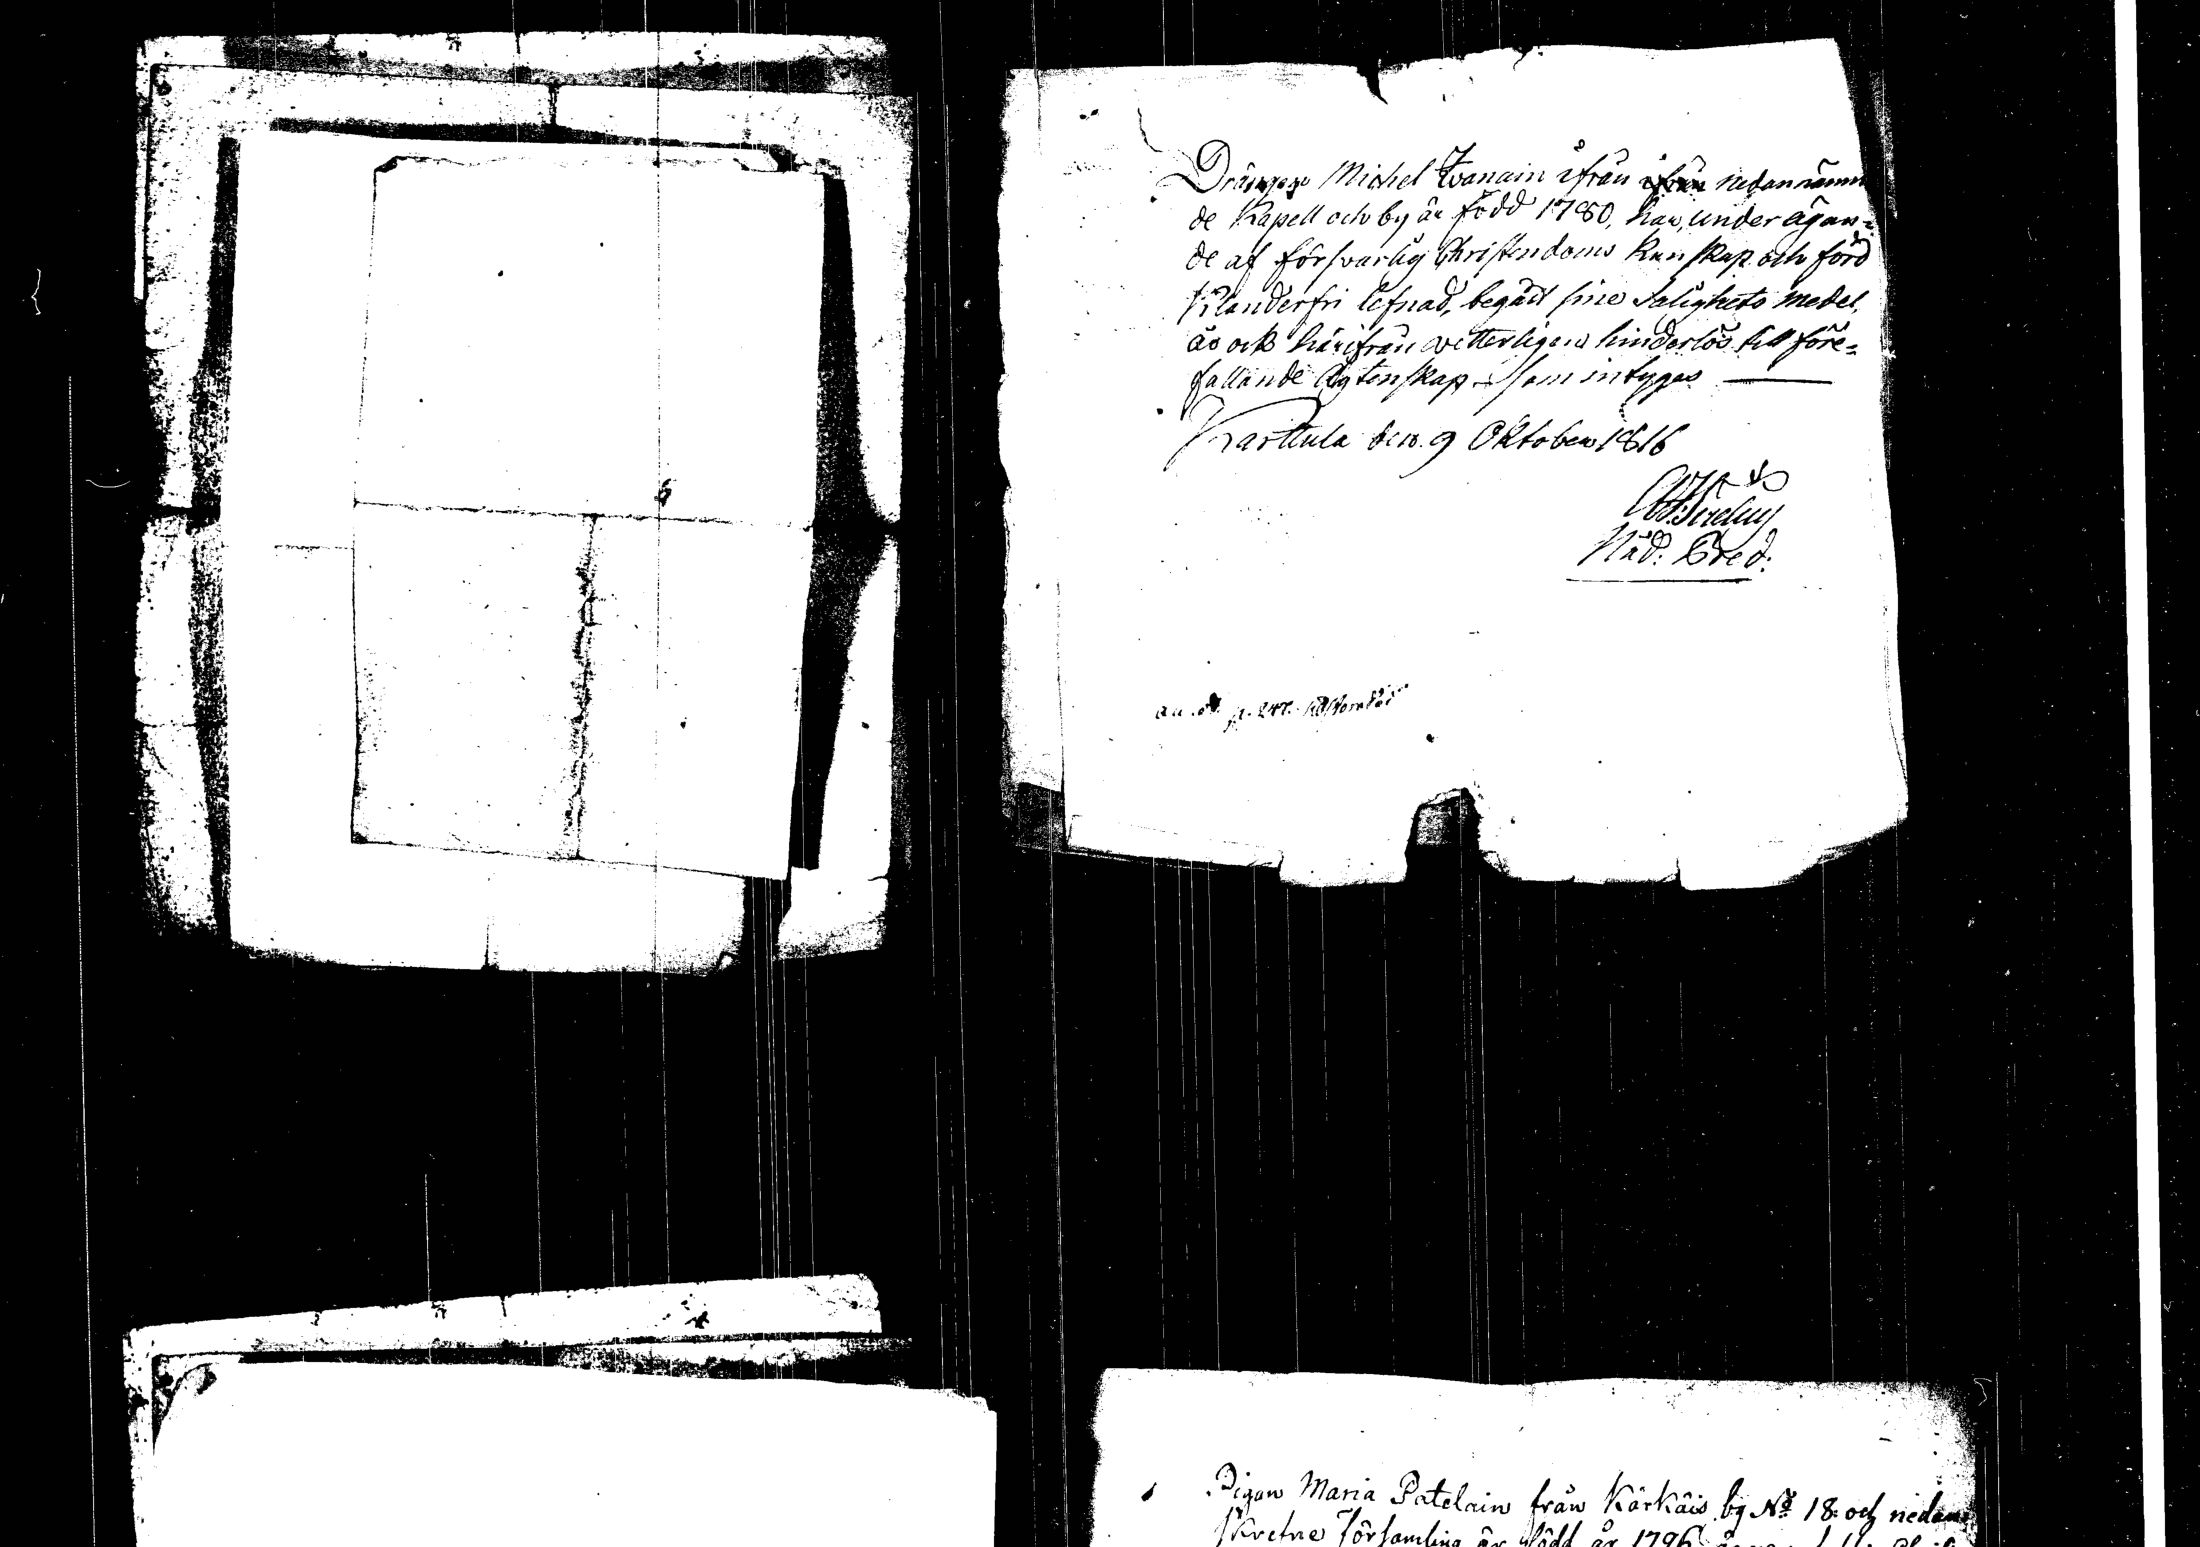 Drängen Michel Ivanain ifrån nedannämn
de Kapell och by är född 1780, har, under ägan=
de af försvarlig Christendoms kunskap och förd
Klanderfri lefnad, begådt sine Salighets medel,
äs ock härifrån vetterligen hinderlös till före=
fallande Ägtenskap – som intygas
Karttula den 9 Oktober 1816
Nåd: Pred:
p. 247.
Pigan Maria Patelain från Kärkäis by No 18. och nedan
skrefne församling är född år 1796